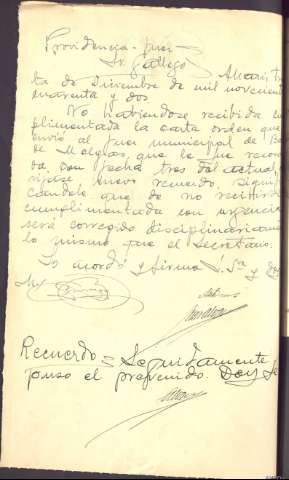 Providencia - Juez
Sr. Gallego
ta de Diciembre de mil novecient
cuarenta y dos
No habiendose recibido cu
plimentada la carta orden que
envió al Juez municipal de Ba
de Molgas, que le fue recor
da con fecha tres del actual,
rijase nuevo recuerdo, signifi
candole que de no recibirse
cumplimentada con urgencia
será corregido disciplinariame
lo mismo que el Secretario.
Lo acordó y firma S. Sª y Doy
Recuerdo = Seguidamente
puso el prevenido. Doy fe